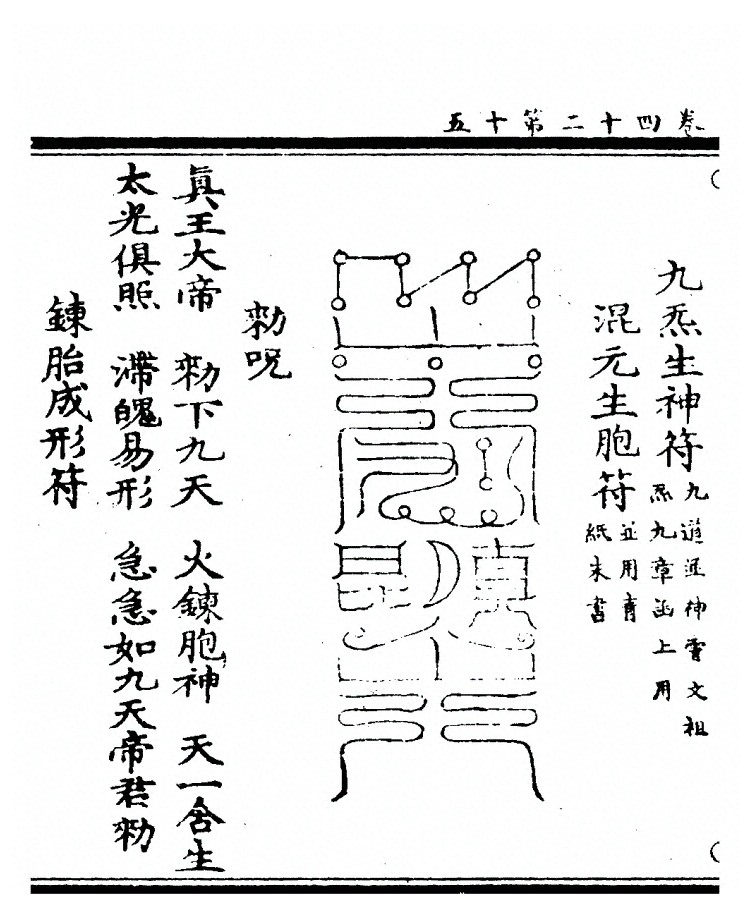 卷四十二第十五
九炁生神符
九道並神霄文祖
炁九章函上用
混元生胞符
並用青
紙朱書
勑呪
眞王大帝 勑下九天 火鍊胞神 天一含生
太光俱照 滯魄易形 急急如九天帝君勑
鍊胎成形符